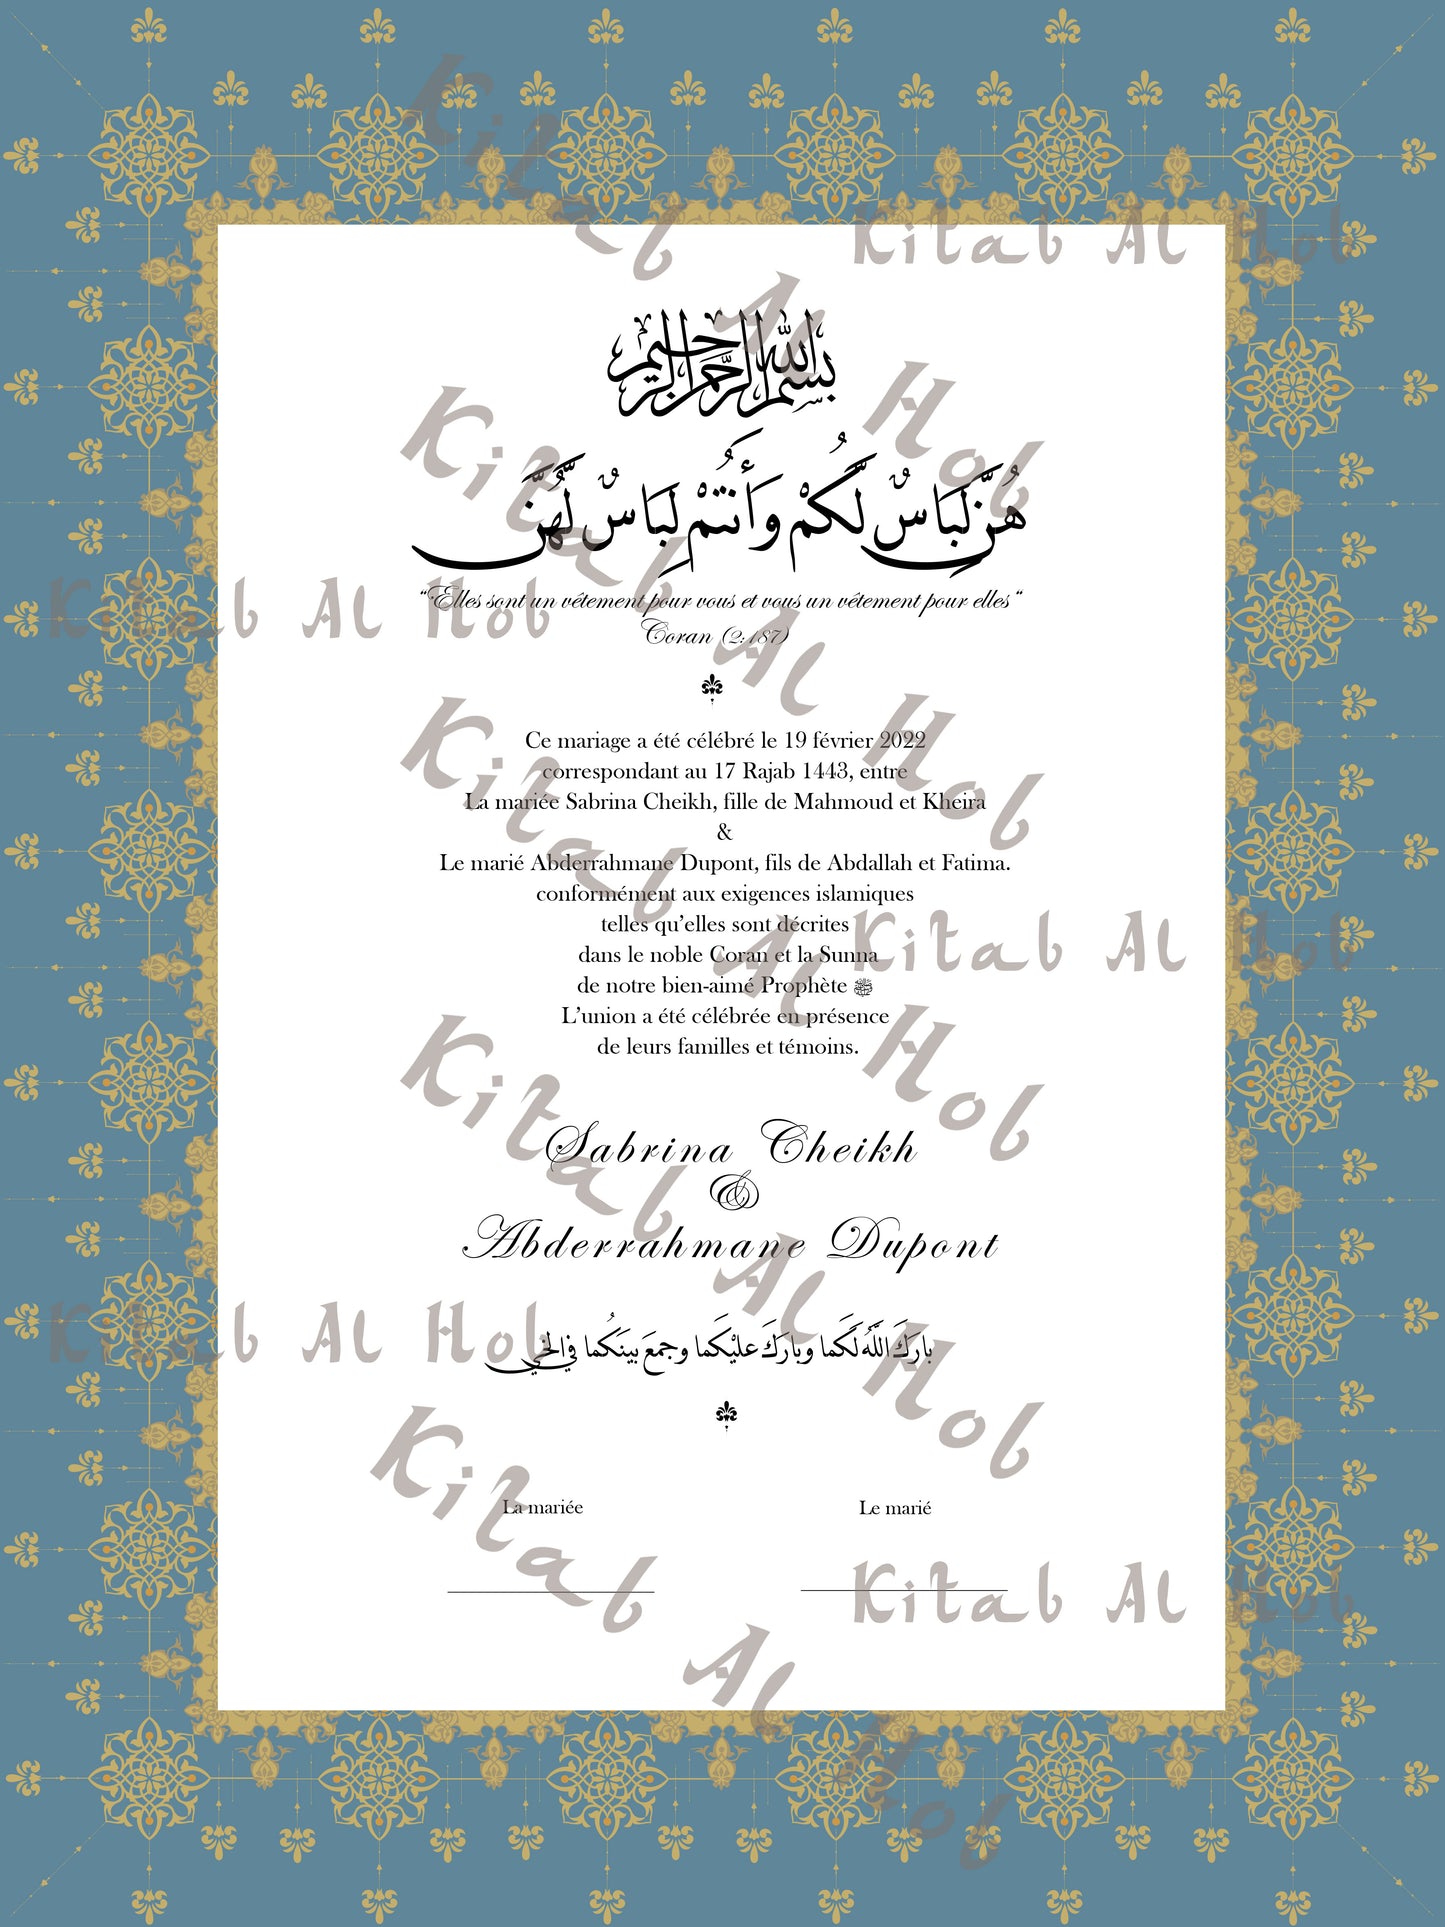 بسم الله الرحمن الرحيم
هُنَّ لِبَاسٌ لَّكُمْ وَأَنتُمْ لِبَاسٌ لَّهُنَّ
“Elles sont un vêtement pour vous et vous un vêtement pour elles“
Coran (2:187)
Ce mariage a été célébré le 19 février 2022
correspondant au 17 Rajab 1443, entre
La mariée Sabrina Cheikh, fille de Mahmoud et Kheira
&
Le marié Abderrahmane Dupont, fils de Abdallah et Fatima.
conformément aux exigences islamiques
telles qu’elles sont décrites
dans le noble Coran et la Sunna
de notre bien-aimé Prophète ﷺ
L’union a été célébrée en présence
de leurs familles et témoins.
Sabrina Cheikh
&
Abderrahmane Dupont
بارَكَ اللَّهُ لَكُما وبارَكَ عليْكُما وجمعَ بينَكُما في الخي
La mariée
Le marié
Kitab Al Hob
Kitab Al Hob
Kitab Al Hob
Kitab Al Hob
Kitab Al Hob
Kitab Al Hob
Kitab Al Hob
Kitab Al Hob
Kitab Al Hob
Kitab Al Hob